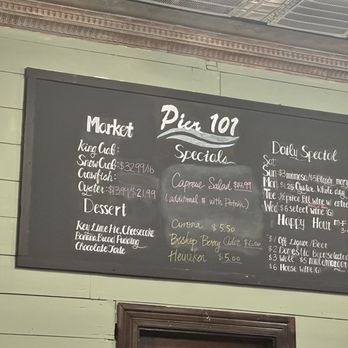 Pier 101
Specials
Market
King Crab:
Snow Crab: $32.99/lb
Crawfish:
Oyster:
Dessert
Key Lime Pie, Cheesecake
Banana Bread Pudding
Chocolate Torte
Caprese Salad
(additional $ with Protein)
Corona $5.50
Bishop Berry Cider $6.00
Heineken $5.00
Daily Special
Sat
Sun $3 mimosa
Mon $1.25 Oyster
Tue
Wed $6 select wine
Happy Hour
$1 Off Liquor/Beer
$2 Domestic
$3 Well
$6 House wine